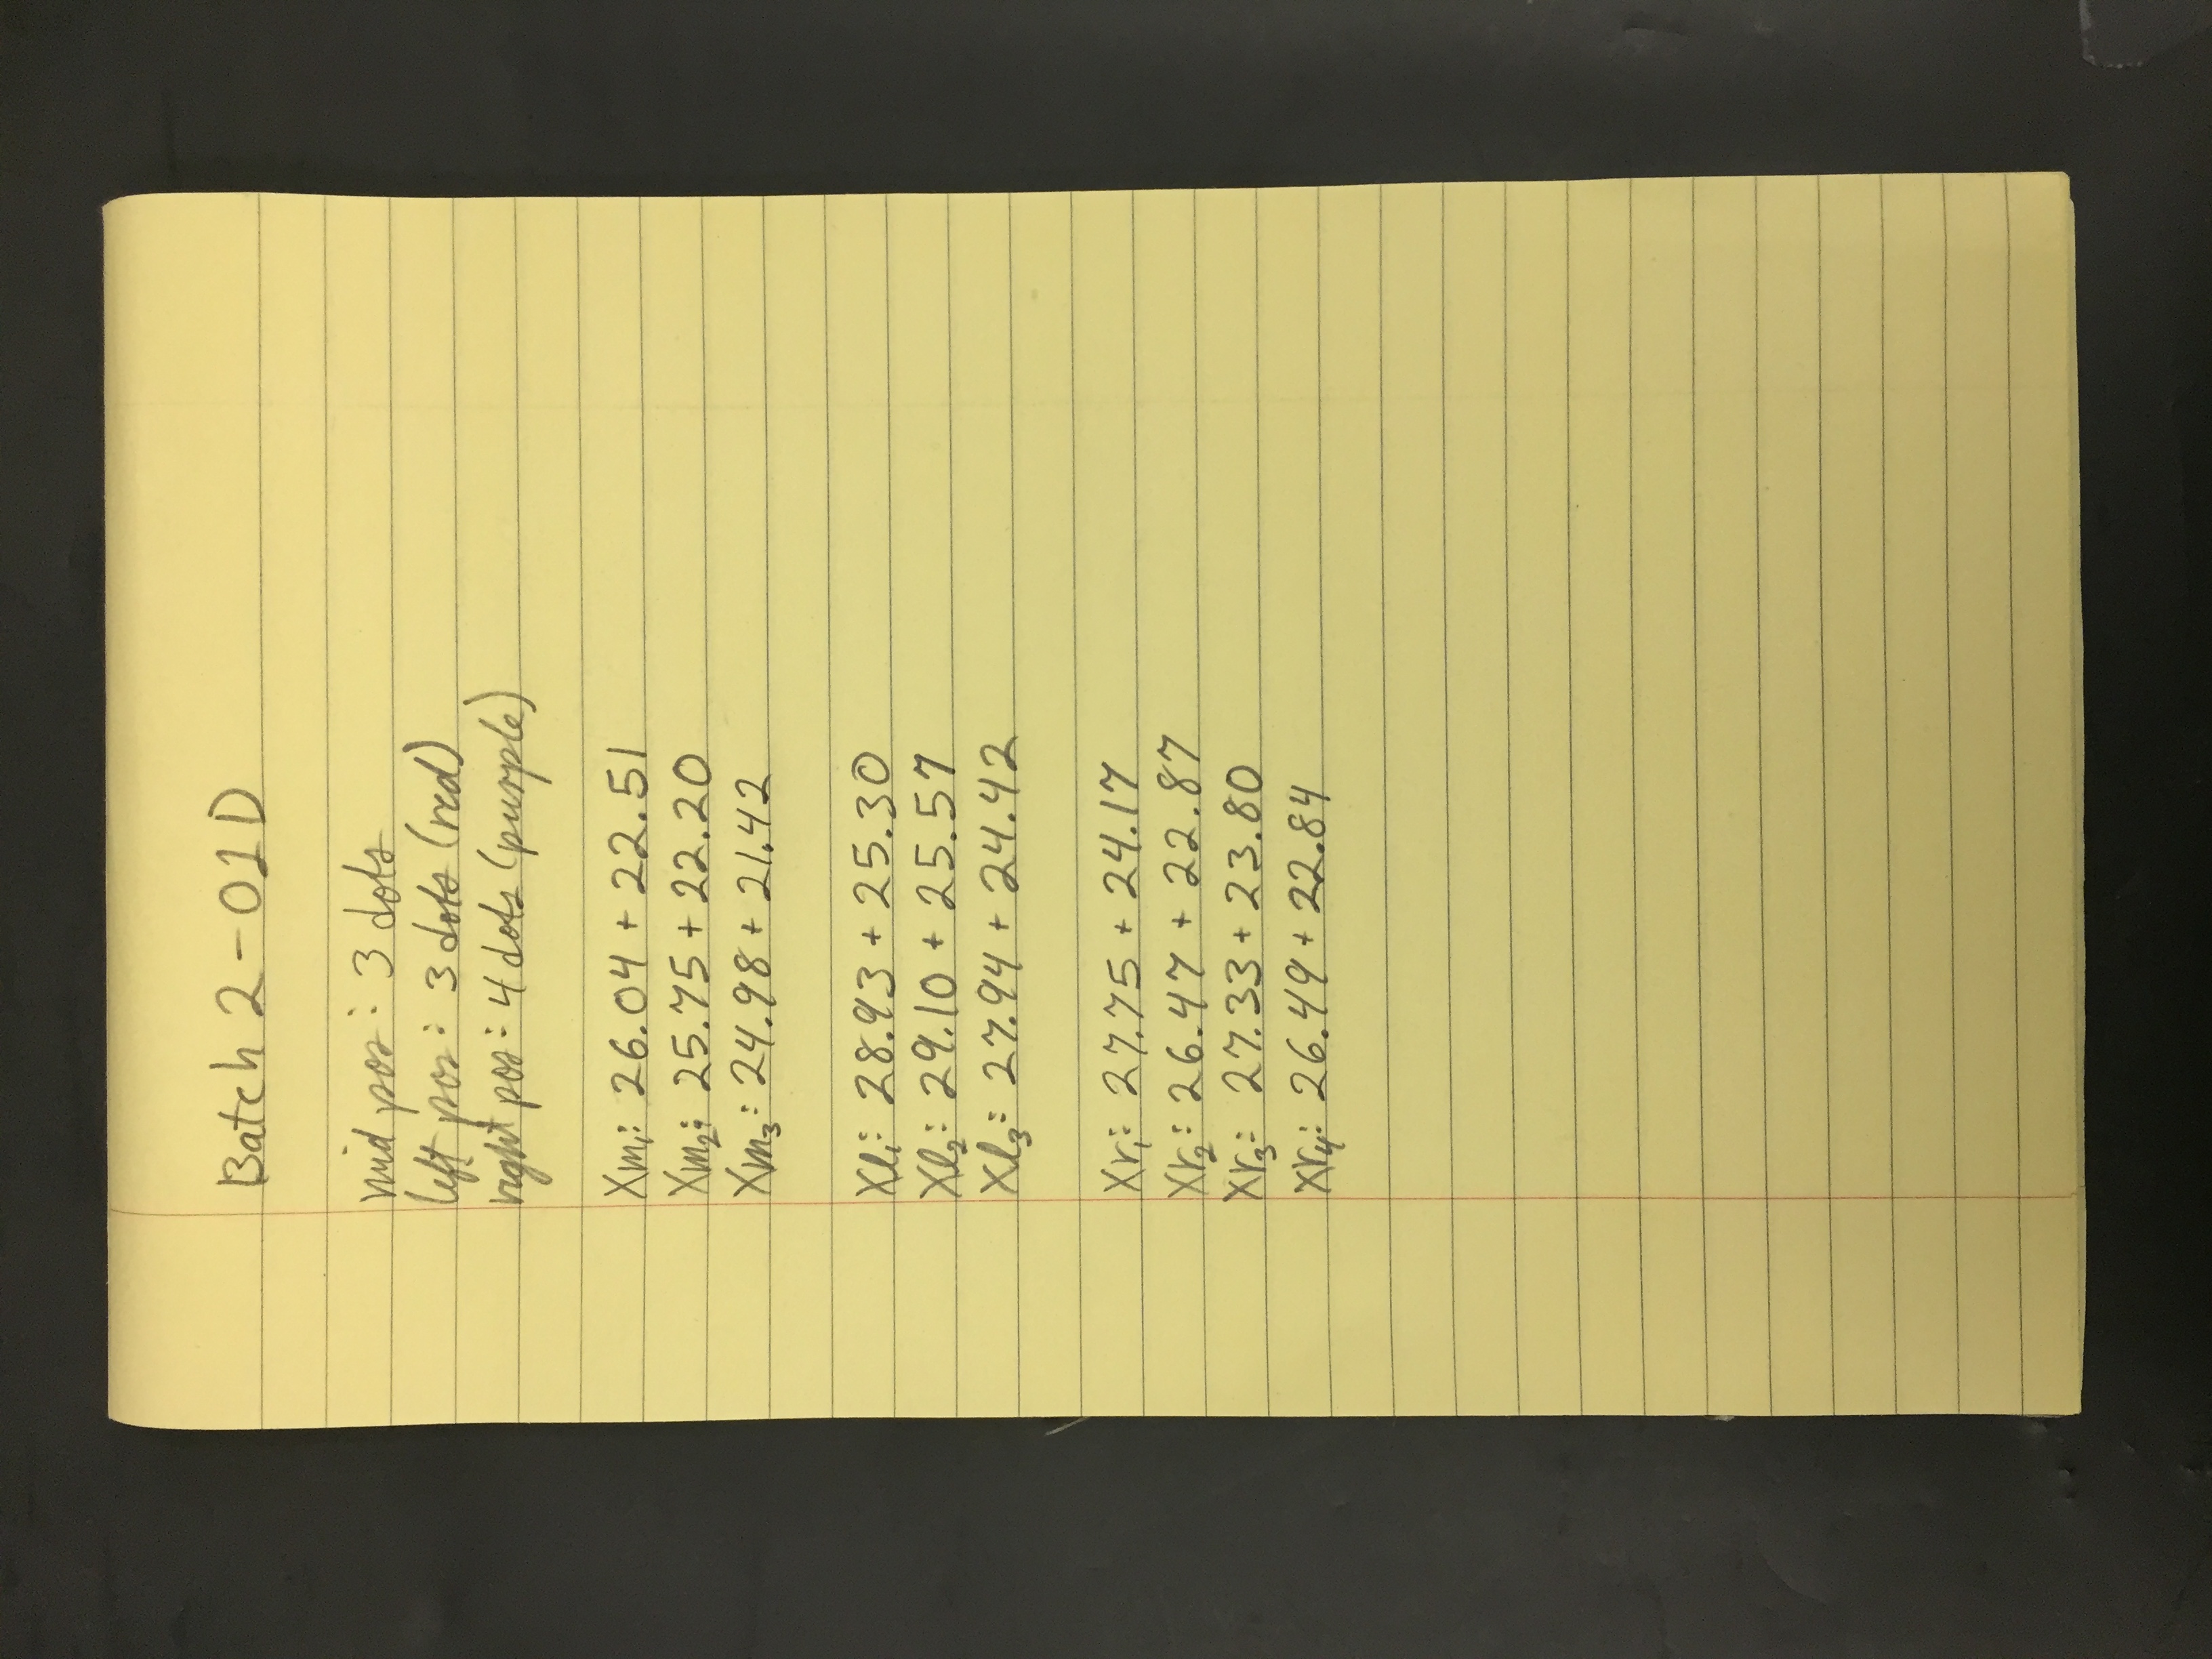 Batch 2-01D
mid pos: 3 dots
left pos: 3 dots (red)
right pos: 4 dots (purple)
Xm₁: 26.04 + 22.51
Xm₂: 25.75 + 22.20
Xm₃: 24.98 + 21.42
Xl₁: 28.93 + 25.30
Xl₂: 29.10 + 25.57
Xl₃: 27.94 + 24.42
Xr₁: 27.75 + 24.17
Xr₂: 26.47 + 22.87
Xr₃: 27.33 + 23.80
Xr₄: 26.49 + 22.84